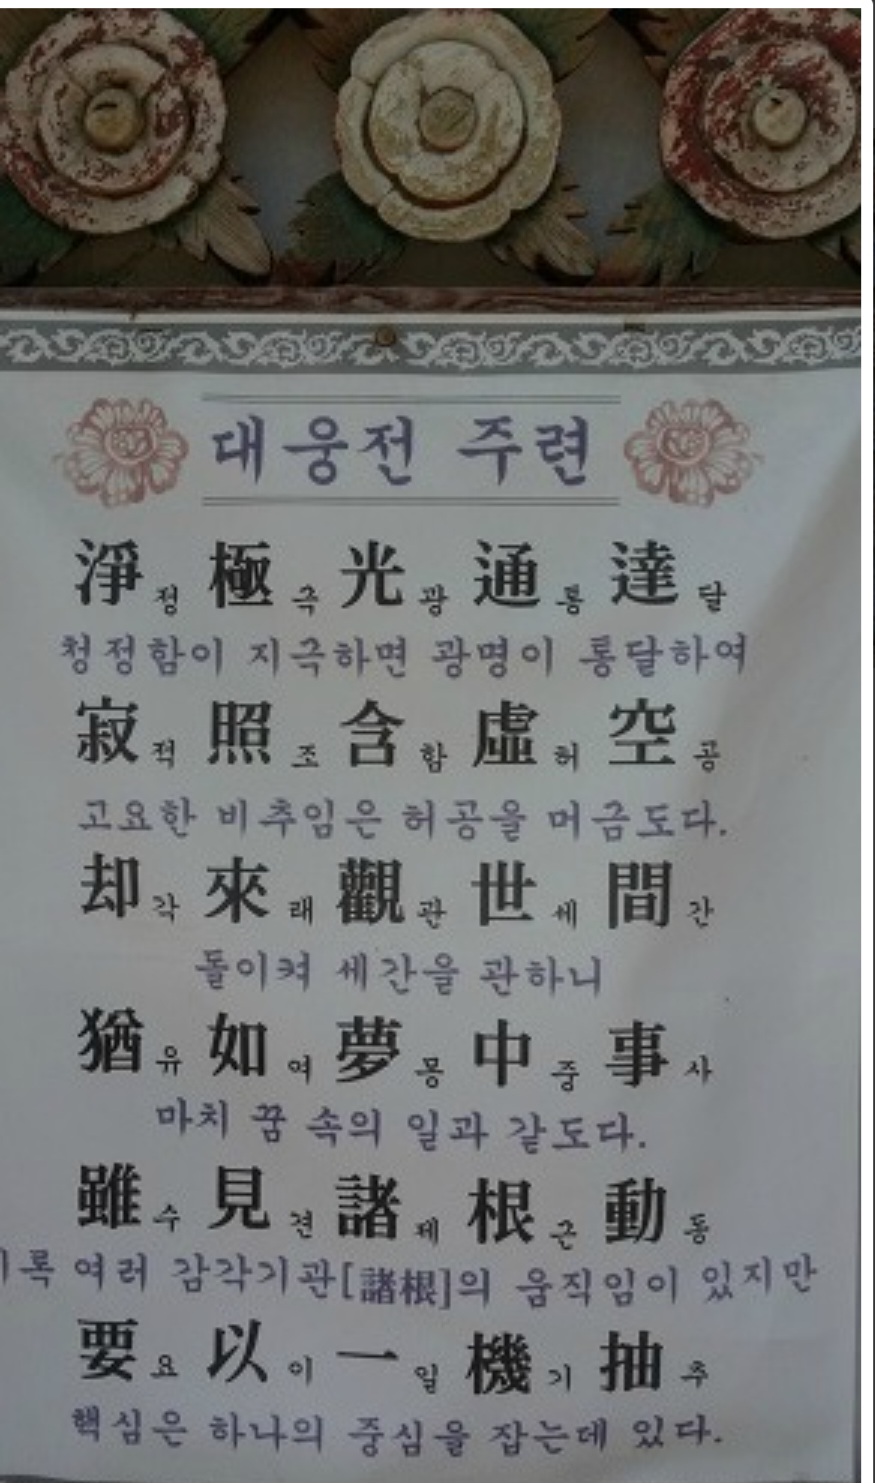 대웅전 주련
淨정 極극 光광 通통 達달
청정함이 지극하면 광명이 통달하여
寂적 照조 含함 虛허 空공
고요한 비추임은 허공을 머금도다.
却각 來래 觀관 世세 間간
돌이켜 세간을 관하니
猶유 如여 夢몽 中중 事사
마치 꿈 속의 일과 같도다.
雖수 見견 諸제 根근 動동
록 여러 감각기관[諸根]의 움직임이 있지만
要요 以이 一일 機기 抽추
핵심은 하나의 중심을 잡는데 있다.